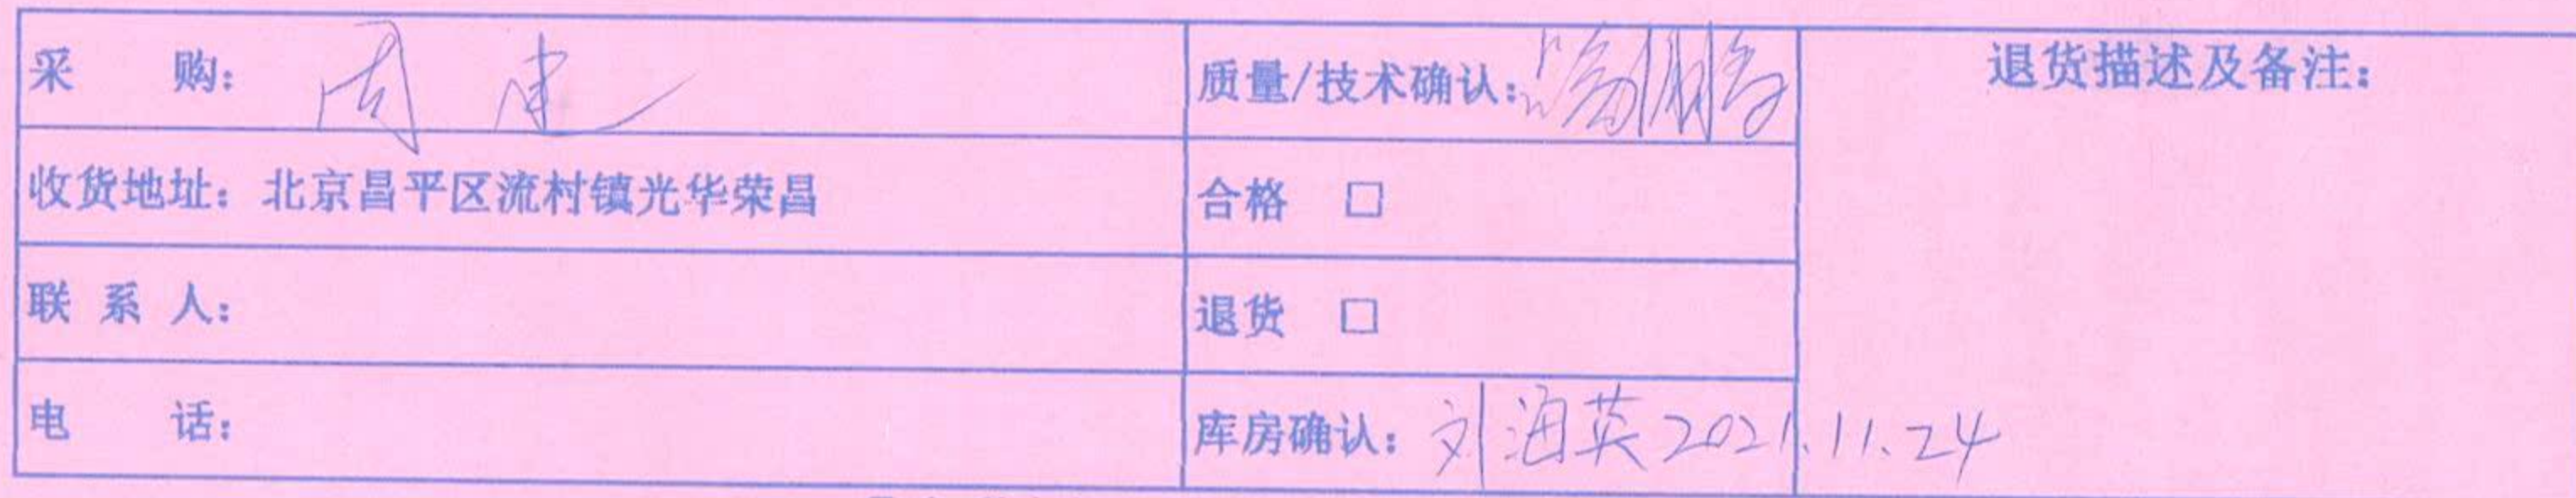 采 购：周建
质量/技术确认：
退货描述及备注：
收货地址：北京昌平区流村镇光华荣昌
合格 □
联 系 人：
退货 □
电 话：
库房确认：刘海英 2021.11.24